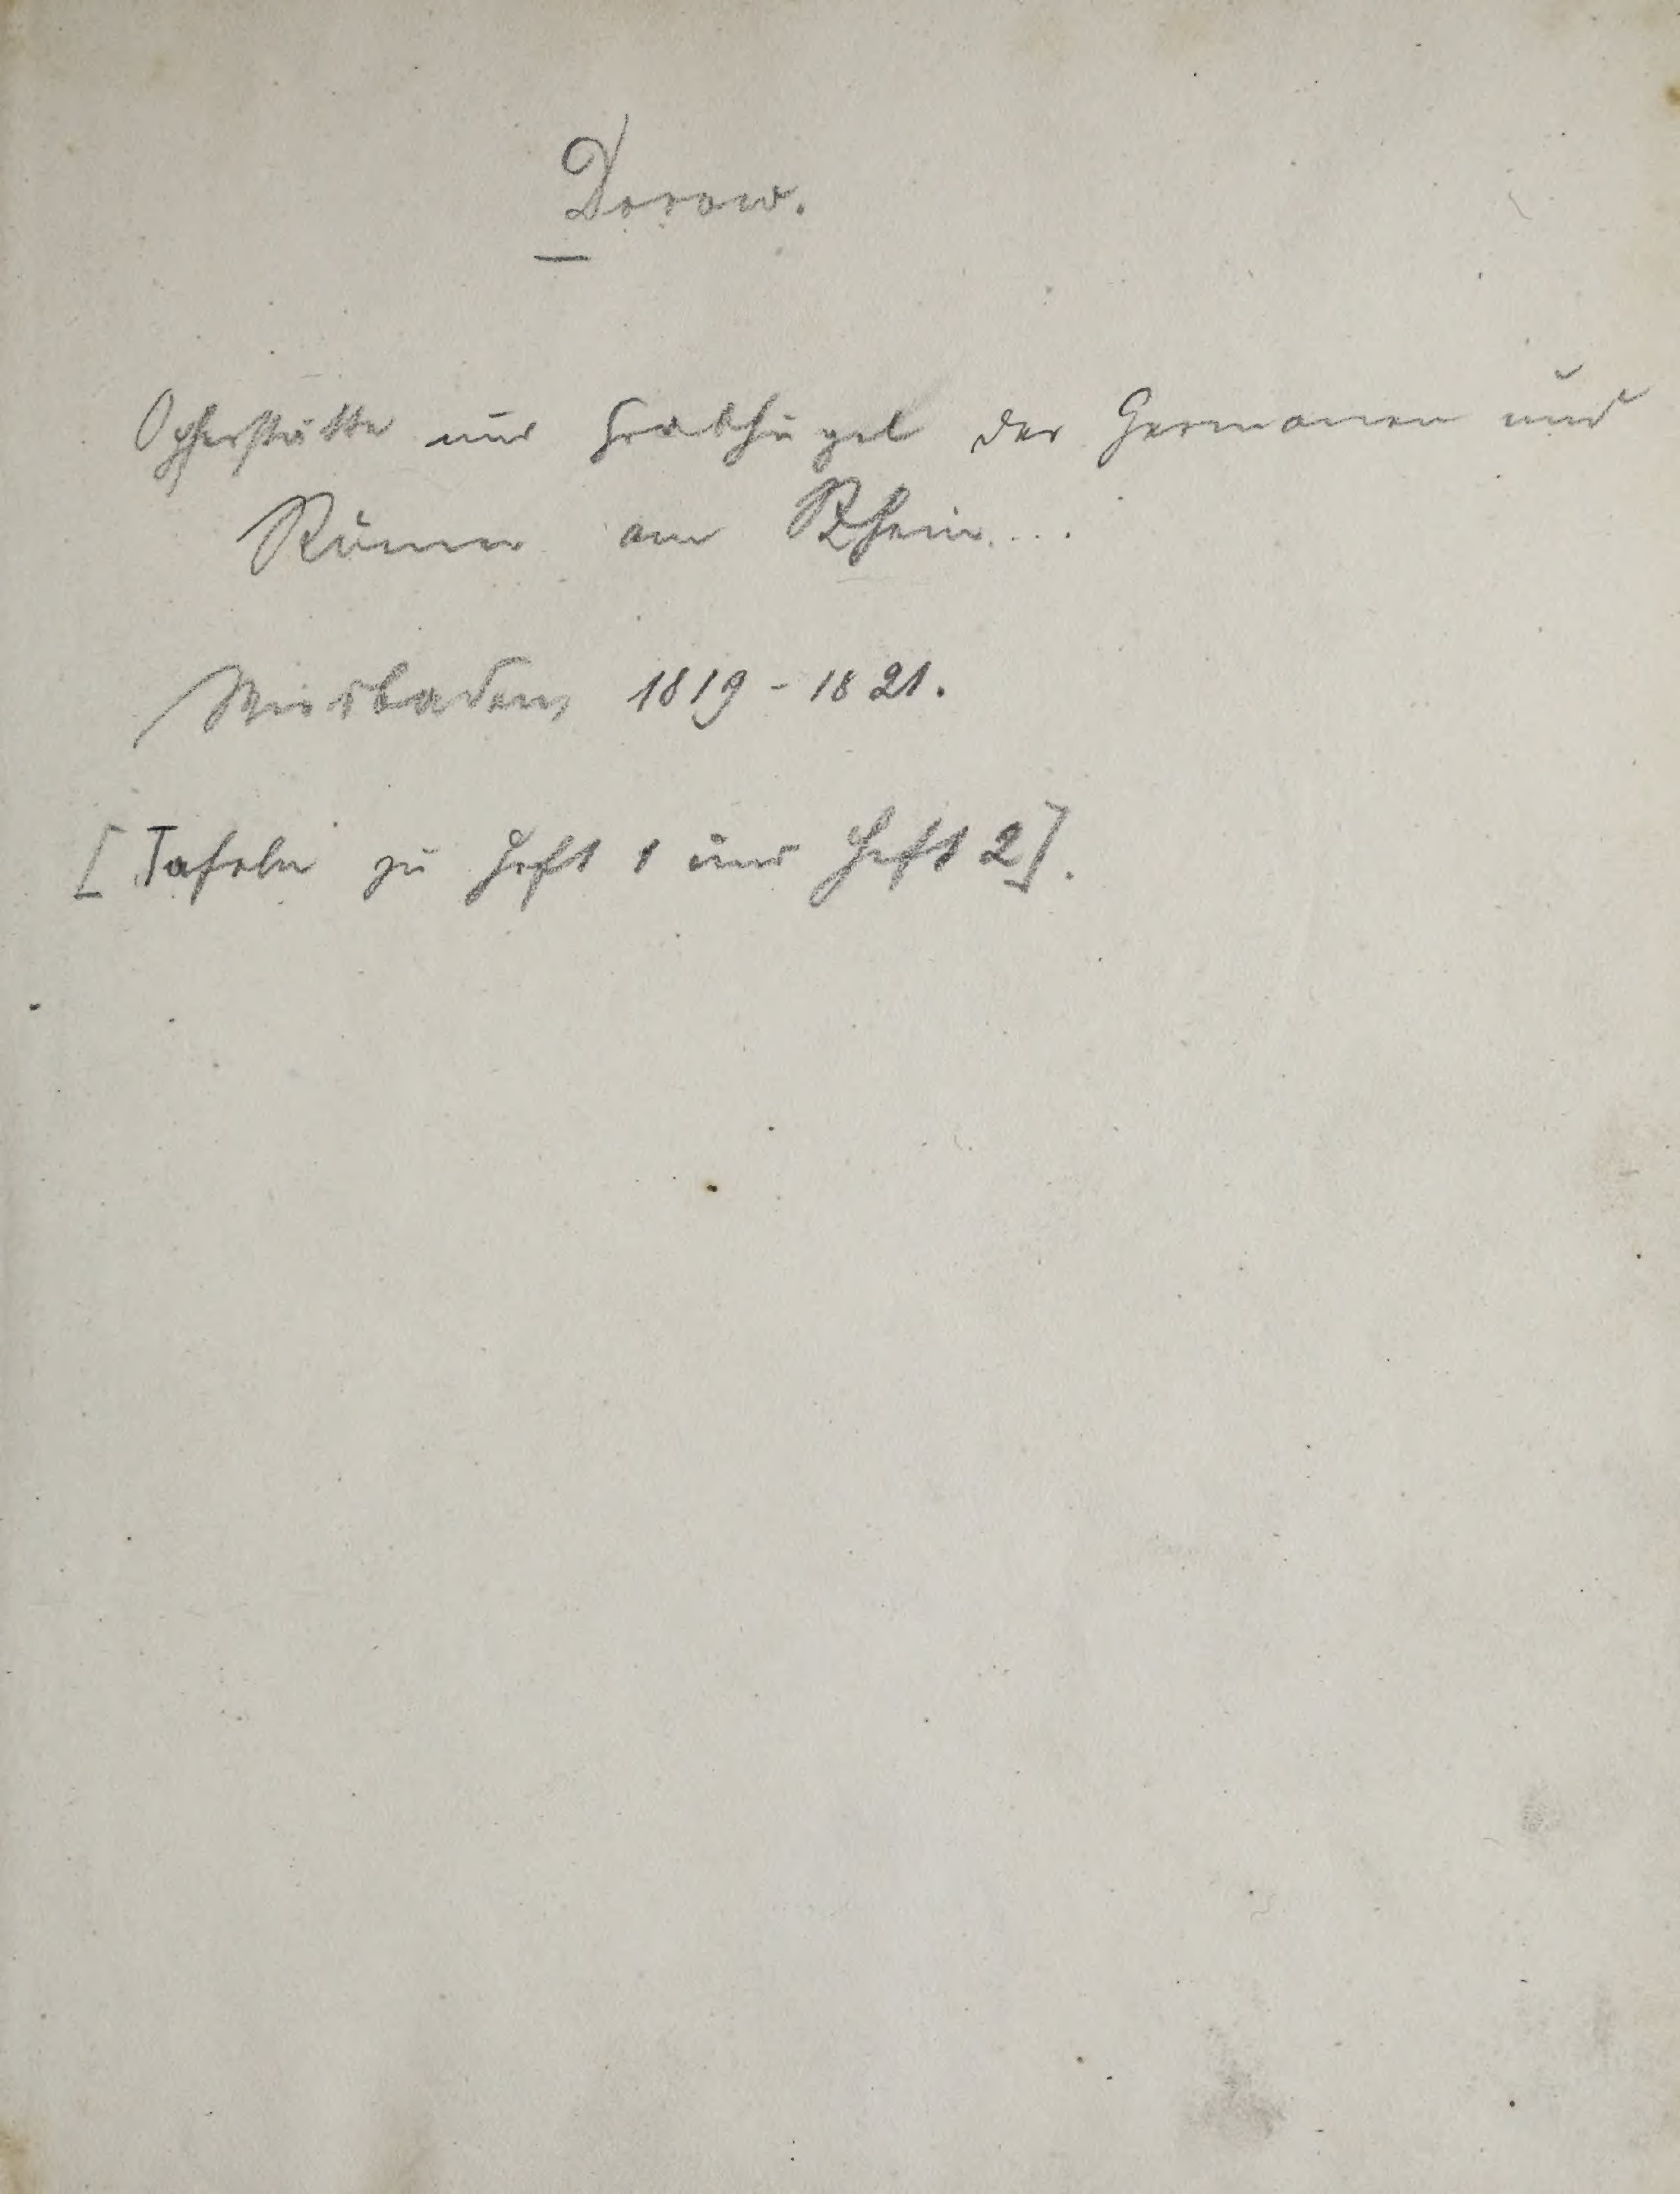 Dorow.
Opferstätte und Grabhügel der Germanen und
Römer am Rhein....
Wiesbaden, 1819 - 1821.
[Tafeln zu Heft 1 und Heft 2].